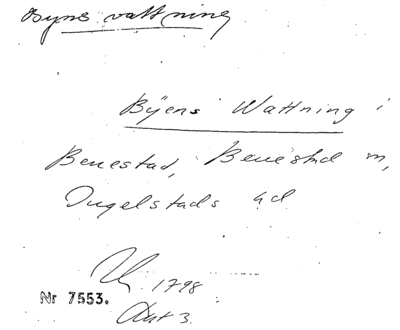 Byns vattning
Byens Wattning i
Benestad, Benestad sn,
Ingelstads hd
1798
Nr 7553.
Akt 3.